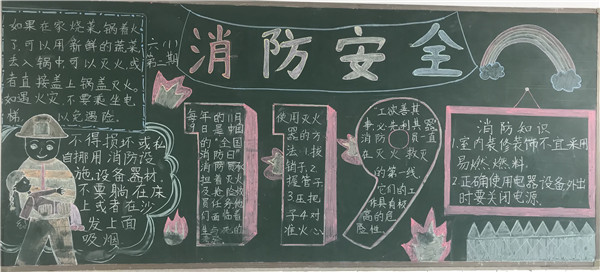 如果在家烧菜锅着火
了,可以用新鲜的蔬菜
去入锅中可以灭火,或
者直接盖上锅盖灭火。
如遇火灾,不要乘坐电
梯 以免遇险。
六(1)
第二期
消防安全
不得损坏或私
自挪用消防设
施、设备器材
不要躺在床
上或者在沙
发上面
吸烟
每年的11月
9日是中国
的"全国
消防日"
使用灭火
器的方
法:1.拔
销子2.
握管子
3.压把
子4.对
准火心
工欲善其
事,必先利其器
消防员一直
在灭火救灾
的第一线,
它们的工
作具有极
高的危
险性。
消防知识
1.室内装修装饰不宜采用
易燃、燃料.
2.正确使用电器设备外出
时要关闭电源.